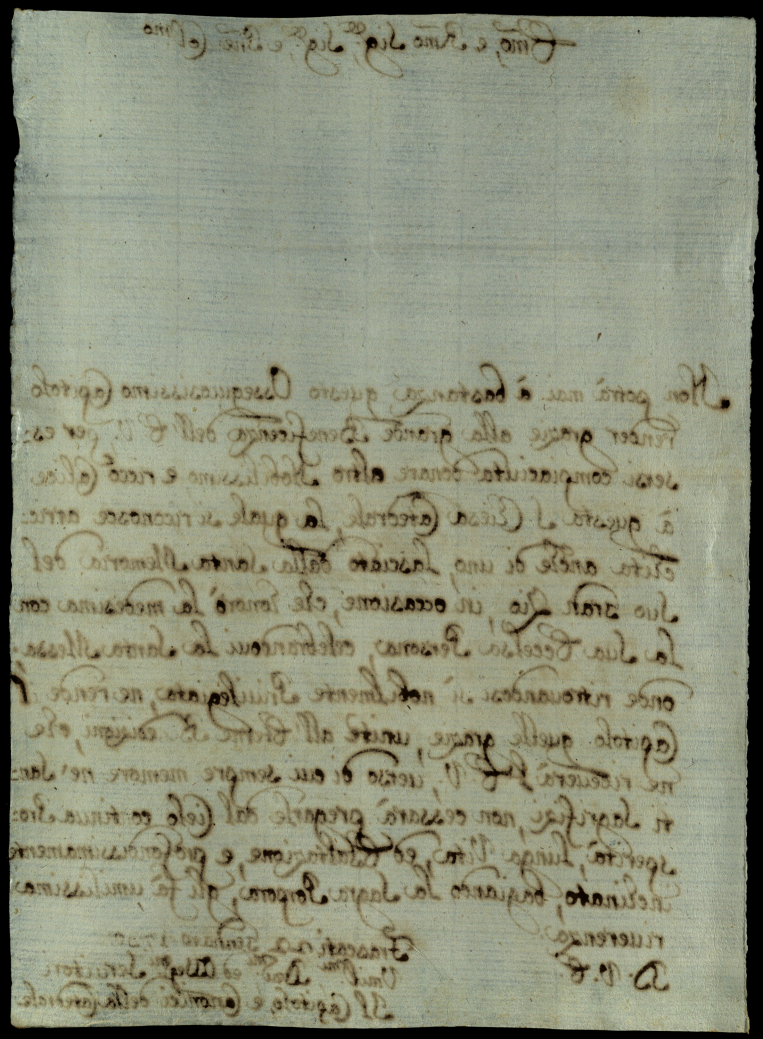 Emo, e Rmo Sigre, Sigre, e Pne Colmo
Non potrà mai à bastanza questo Ossequiosissimo Capitolo
render grazie alla grande Beneficenza dell'E. V. per es=
sersi compiaciuta donare altro Nobilissimo e ricco Calice
à questa S. Chiesa Catedrale, la quale si riconosce arric=
chita anche di uno, lasciato dalla Santa Memoria del
Suo Gran Zio, in occasione, che honorò la medesima con
la Sua Eccelsa Persona, celebrandoui la Santa Messa
onde ritrouandosi sì nobilmente Priuilegiato, ne rende il
Capitolo quelle grazie, unite all' Eterne Bendizioni, che
ne riceuerà l'E. V., uerso di cui sempre memore ne' San=
ti Sagrifizi, non cesserà pregarle dal Cielo continua Pro=
sperità, lunga Vita, ed Esaltazione, e profondissimamente
inclinato, bagiando la Sagra Porpora, gli fà umilissima
riuerenza
D. V. E.
Frascati Gennaro
Vmilmi Deumi ed Obligmi Seruitori
Il Capitolo, e Canonici della Catedrale